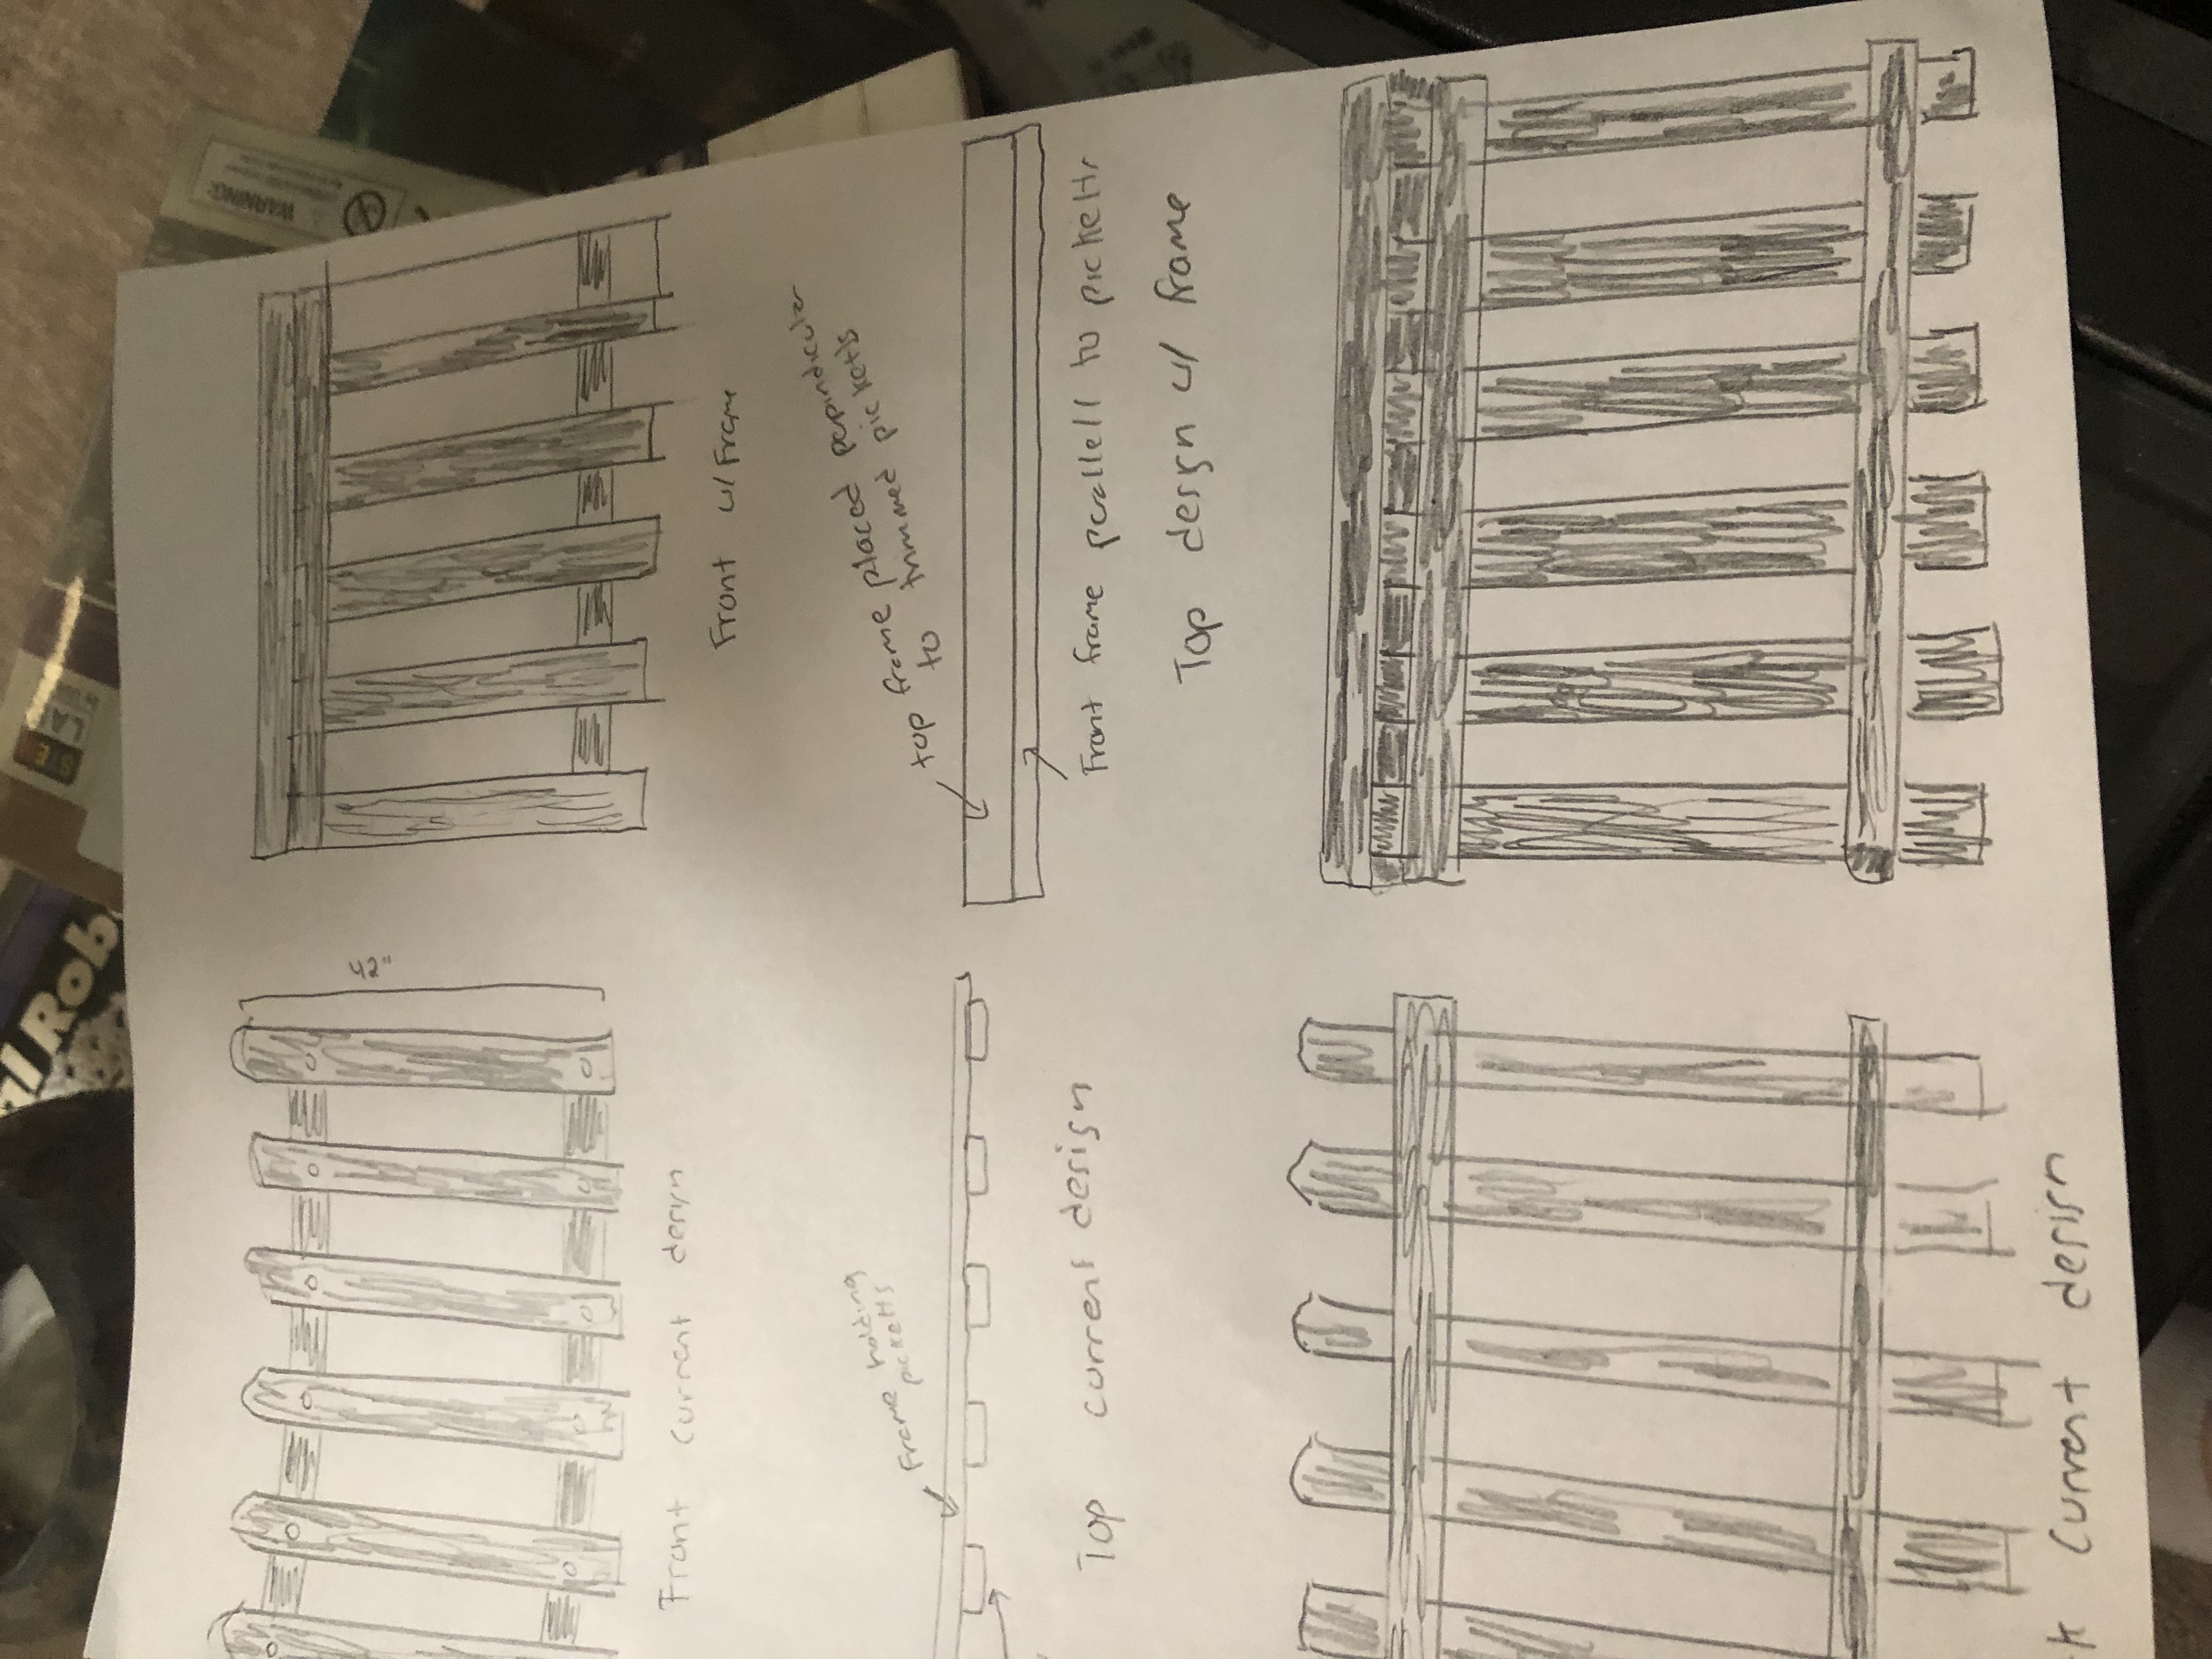 al Rob
STE
LA
WARNING:
42"
Front current design
Front w/ Frame
Frame holding
picketts
top frame placed perpindicular
to trimmed picketts
Top current design
Front frame parallell to picketts
Top design w/ frame
k current design